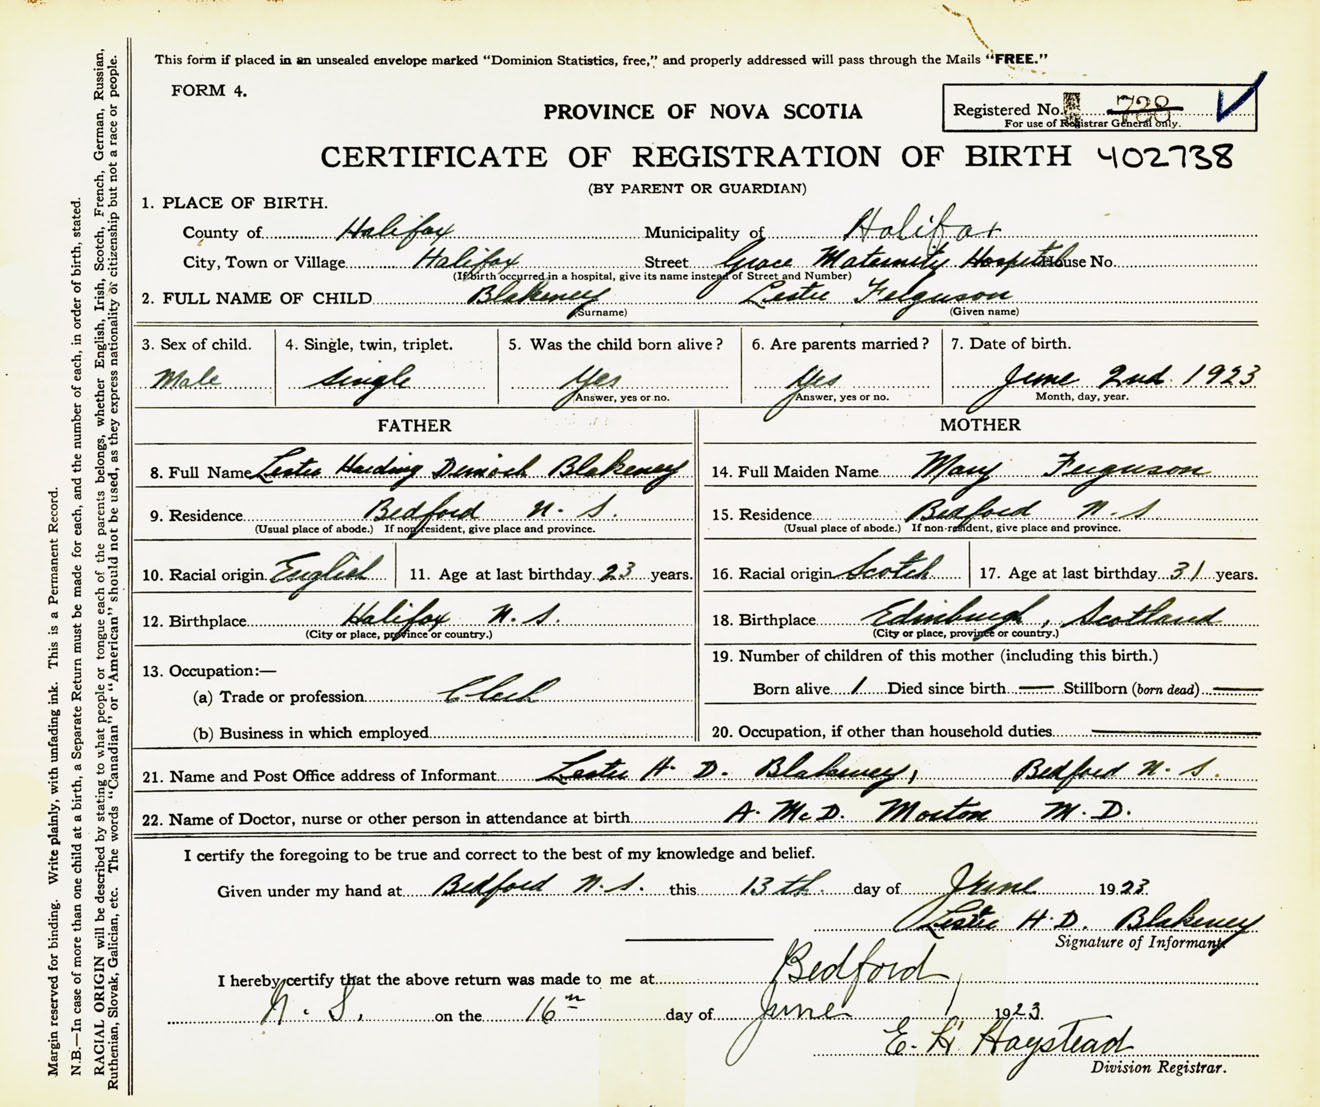 This form if placed in an unsealed envelope marked "Dominion Statistics, free," and properly addressed will pass through the Mails "FREE."
FORM 4.
PROVINCE OF NOVA SCOTIA
Registered No. 728
For use of Registrar General only.
CERTIFICATE OF REGISTRATION OF BIRTH 402738
(BY PARENT OR GUARDIAN)
1. PLACE OF BIRTH.
County of Halifax Municipality of Halifax
City, Town or Village Halifax Street Grace Maternity Hospital House No.
(If birth occurred in a hospital, give its name instead of Street and Number)
2. FULL NAME OF CHILD Blakeney Leslie Ferguson
(Surname) (Given name)
3. Sex of child. 4. Single, twin, triplet. 5. Was the child born alive? 6. Are parents married? 7. Date of birth.
Male Single Yes Yes June 2nd 1923
Answer, yes or no. Answer, yes or no. Month, day, year.
FATHER MOTHER
8. Full Name Leslie Harding Dimock Blakeney 14. Full Maiden Name Mary Ferguson
9. Residence Bedford N. S. 15. Residence Bedford N. S.
(Usual place of abode.) If non-resident, give place and province. (Usual place of abode.) If non-resident, give place and province.
10. Racial origin English 11. Age at last birthday 23 years. 16. Racial origin Scotch 17. Age at last birthday 31 years.
12. Birthplace Halifax N. S. 18. Birthplace Edinburgh, Scotland
(City or place, province or country.) (City or place, province or country.)
13. Occupation:— 19. Number of children of this mother (including this birth.)
(a) Trade or profession Clerk Born alive 1 Died since birth — Stillborn (born dead) —
(b) Business in which employed 20. Occupation, if other than household duties —
21. Name and Post Office address of Informant Leslie H. D. Blakeney, Bedford N. S.
22. Name of Doctor, nurse or other person in attendance at birth A. McD. Morton M. D.
I certify the foregoing to be true and correct to the best of my knowledge and belief.
Given under my hand at Bedford N. S. this 13th day of June 1923
Leslie H. D. Blakeney
Signature of Informant
I hereby certify that the above return was made to me at Bedford,
N. S. on the 16th day of June 1923.
E. H. Haystead
Division Registrar.
Margin reserved for binding. Write plainly, with unfading ink. This is a Permanent Record.
N.B.—In case of more than one child at a birth, a Separate Return must be made for each, and the number of each, in order of birth, stated.
RACIAL ORIGIN will be described by stating to what people or tongue each of the parents belongs, whether English, Irish, Scotch, French, German, Russian,
Ruthenian, Slovak, Galician, etc. The words "Canadian" or "American" should not be used, as they express nationality or citizenship but not a race or people.